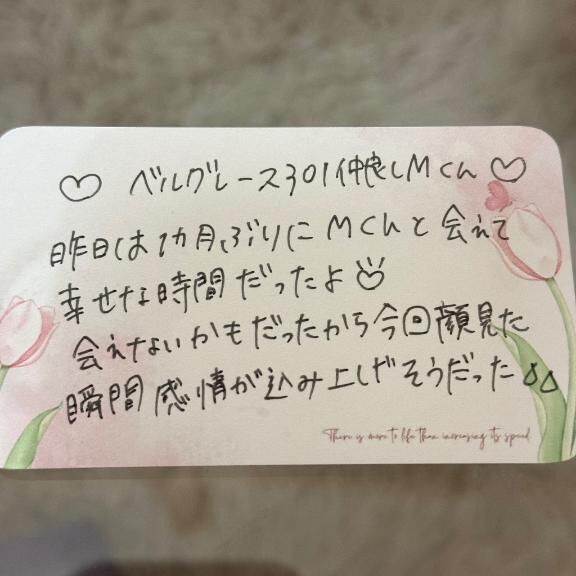 ♡ ベルグレース301仲良しMくん ♡
昨日は1カ月ぶりにMくんと会えて
幸せな時間だったよ♡
会えないかもだったから今回顔見た
瞬間感情が込み上げそうだった
There is more to life than increasing its speed